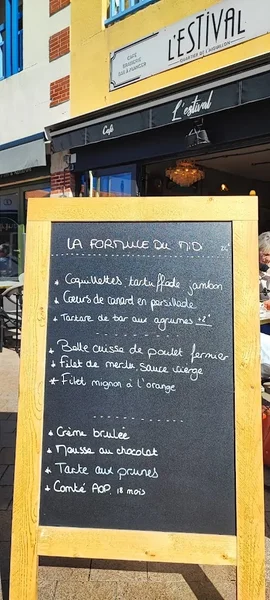 L'ESTIVAL
CAFÉ
BRASSERIE
BAR À MANGER
QUARTIER DE L'AIGUILLON
Café L'estival
LA FORMULE DU MIDI
+ Coquillettes tartuffade jambon
+ Coeurs de canard en persillade
+ Tartare de bar aux agrumes +2€
+ Belle cuisse de poulet fermier
+ Filet de merlu sauce vierge
+ Filet mignon à l'orange
+ Crème brulée
+ Mousse au chocolat
+ Tarte aux prunes
+ Comté AOP 18 mois